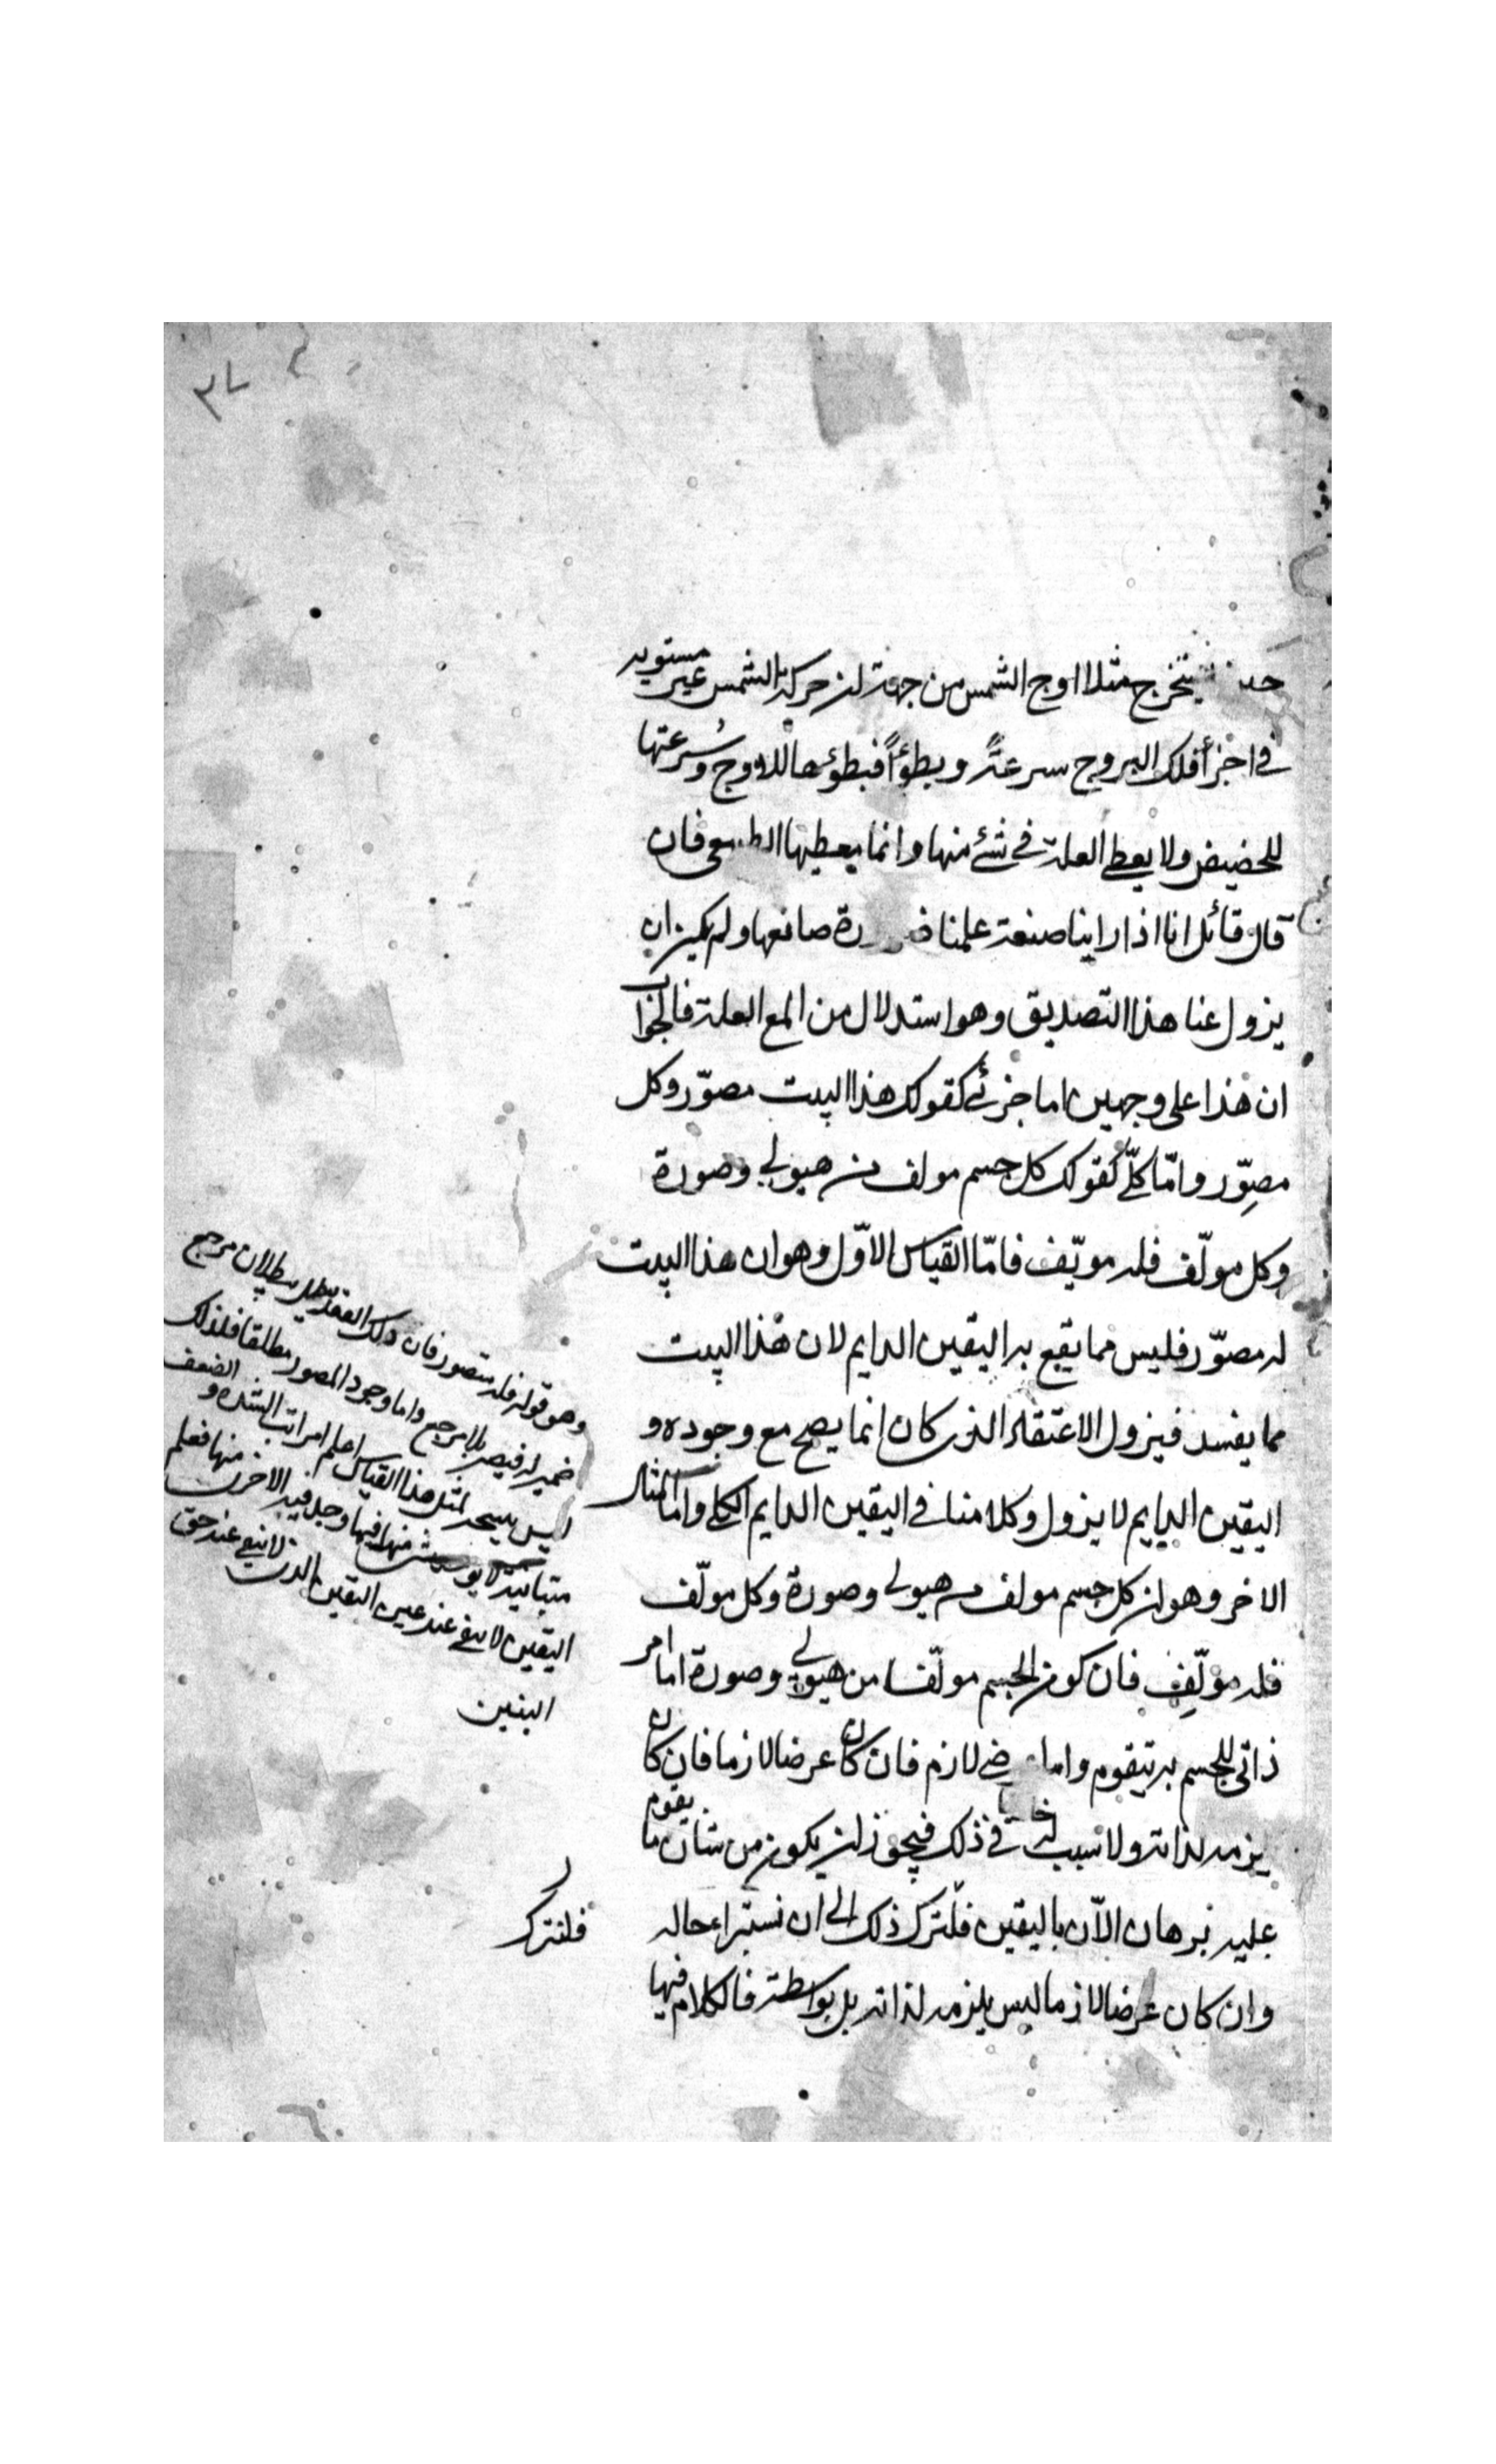 ٣٧
يتخرج مثلا اوج الشمس من جهة ان حركة الشمس غير مستوية
في اجزأ فلك البروج سرعةً وبطؤاً فبطؤها للاوج وسُرعتها
للحضيض ولا يعطى العلة في شئ منها وانما يعطيها الطبيعي فان
قال قائل انا اذا راينا صنعة علمنا ضرورة صانعها ولم يمكن ان
يزول عنا هذا التصديق وهو استدلال من المع العلة فالجواب
ان هذا على وجهين اما جزئي كقولك هذا البيت مصوّر وكل
مصِوّر وامّا كلّي كقولك كل جسم مولف من هيولي وصورة
وكل مولّف فله مويّف فامّا القياس الاوّل وهو ان هذا البيت
له مصوّر فليس مما يقع به اليقين الدايم لان هذا البيت
مما يفسد فيزول الاعتقاد الذي كان انما يصح مع وجوده و
اليقين الدايم لا يزول وكلامنا في اليقين الدايم الكلي واما المثال
الاخر وهو ان كل جسم مولف من هيولي وصورة وكل مولّف
فله مؤلِّف فان كون الجسم مولّفا من هيولي وصورة اما امر
ذاتي للجسم به يتقوم واما لازم فان كان عرضا لازما فان كان
يزمه لذاته ولا سبب له في ذلك فيجوز ان يكون من شان ما يقوم
عليه برهان الاّن باليقين فلنترك ذلك الى ان نستبرا حاله
وان كان عرضا لازما ليس يلزمه لذاته بل بواسطة فالكلام فيها
وهو قوله فله متصور فان ذلك العقد يبطل ببطلان مرجع
ضمير له فيصير بلا مرجع واما وجود المصور مطلقا فلذلك
ليس لمثل هذا القياس اعلم ان مراتب الشده و الضعف
متباينة منها فيها وجد فيه الاخرى منها فعلم
اليقين لا يبقى عند عين اليقين الذي لا يبقى عند حق
اليقين
فلنترك